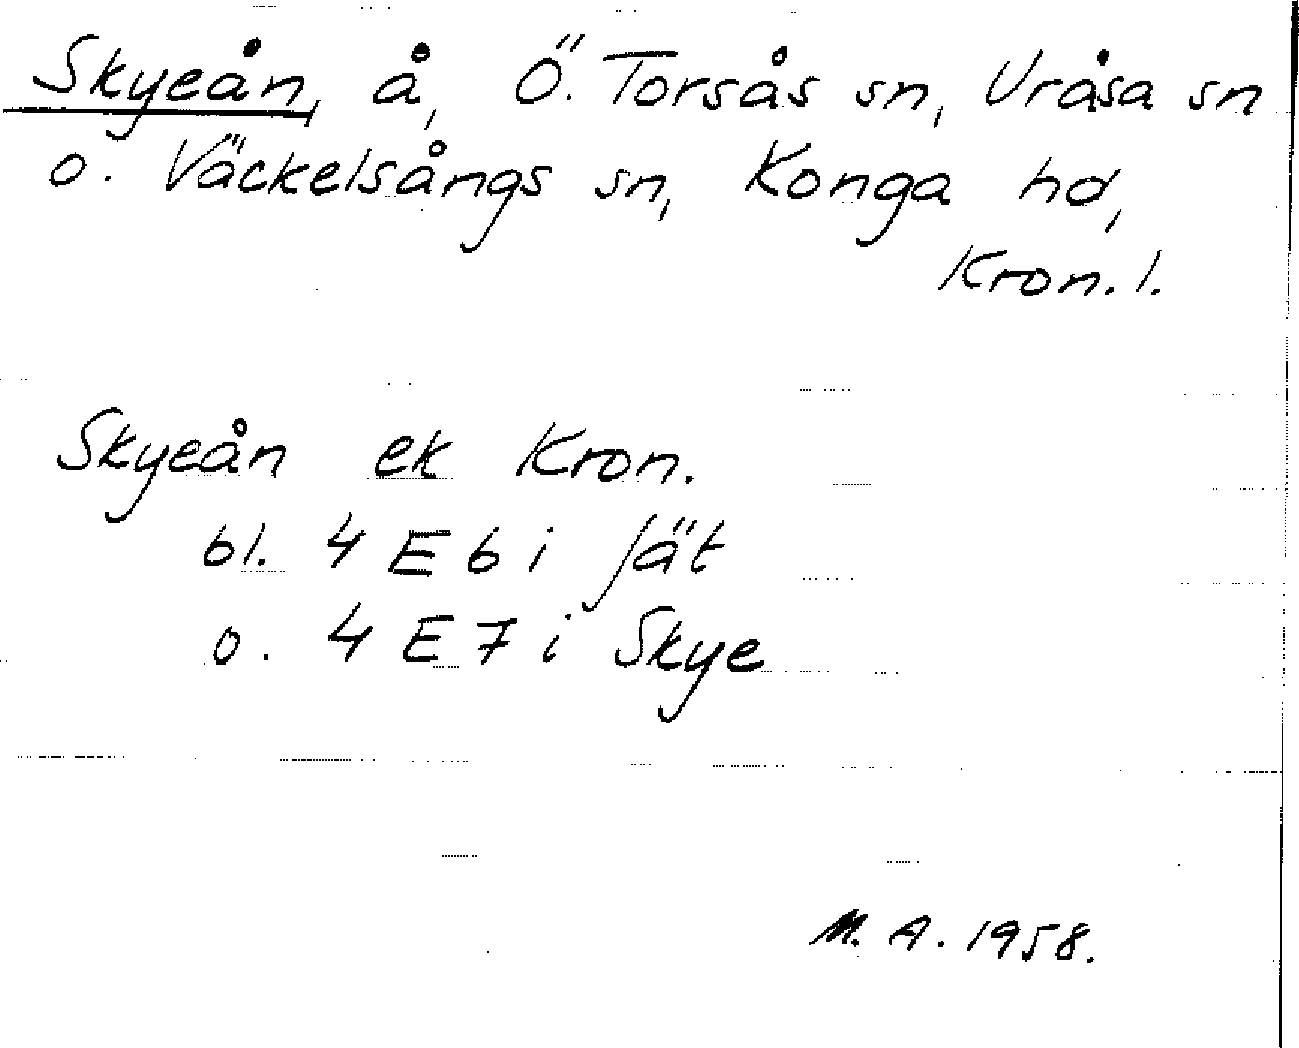 Skyeån, å, Ö. Torsås sn, Uråsa sn
o. Väckelsångs sn, Konga hd,
Kron. l.
Skyeån ek Kron.
bl. 4 E 6 i Jät
o. 4 E 7 i Skye
M. A. 1958.